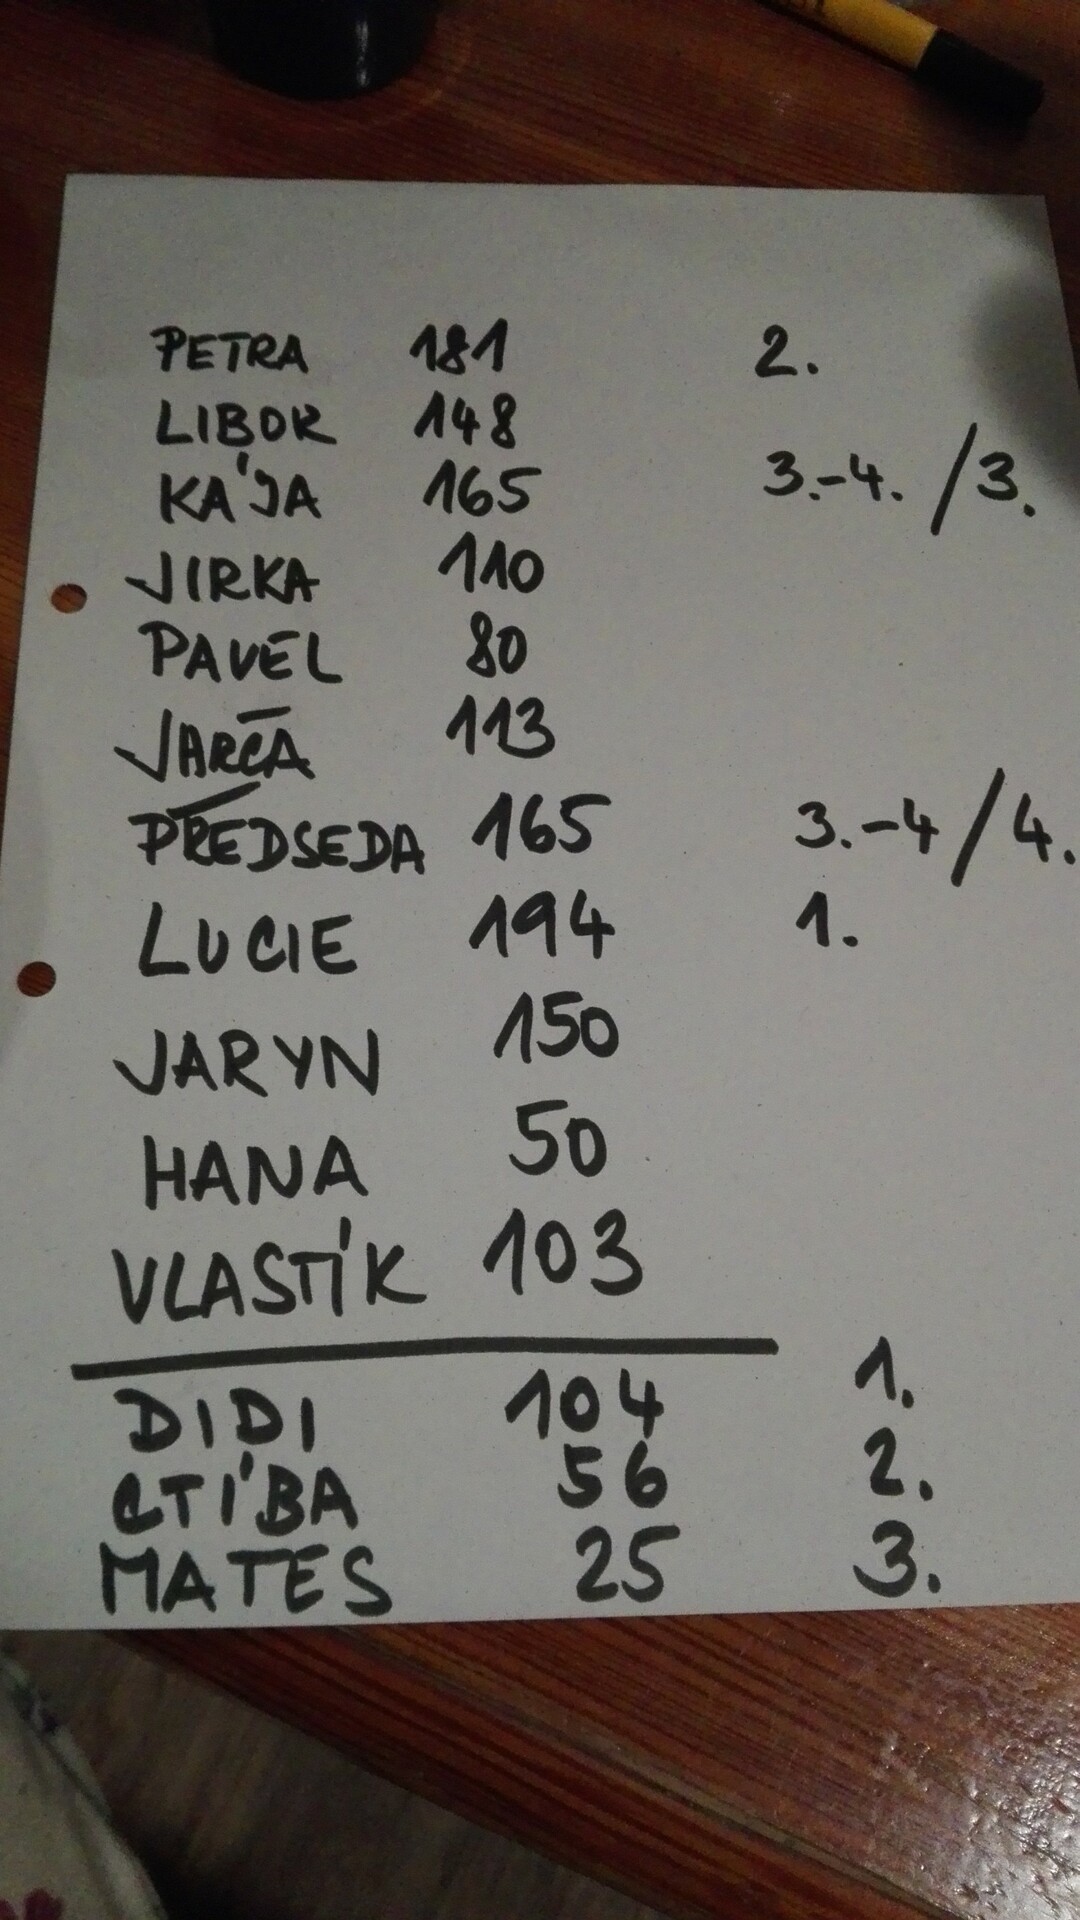 PETRA 181 2.
LIBOR 148
KÁJA 165 3.-4. /3.
JIRKA 110
PAVEL 80
JARČA 113
PŘEDSEDA 165 3.-4 / 4.
LUCIE 194 1.
JARYN 150
HANA 50
VLASTÍK 103
DIDI 104 1.
CTÍBA 56 2.
MATES 25 3.